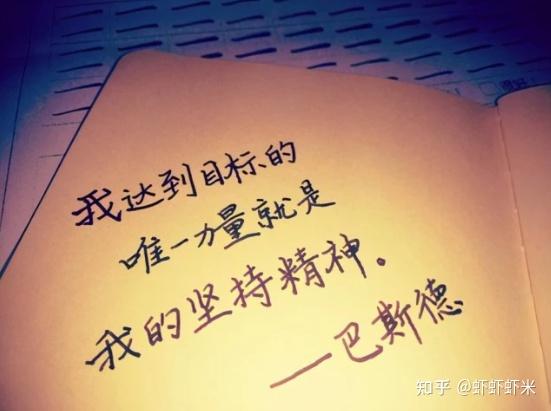 我达到目标的
唯一力量就是
我的坚持精神。
—巴斯德
知乎 @虾虾虾米